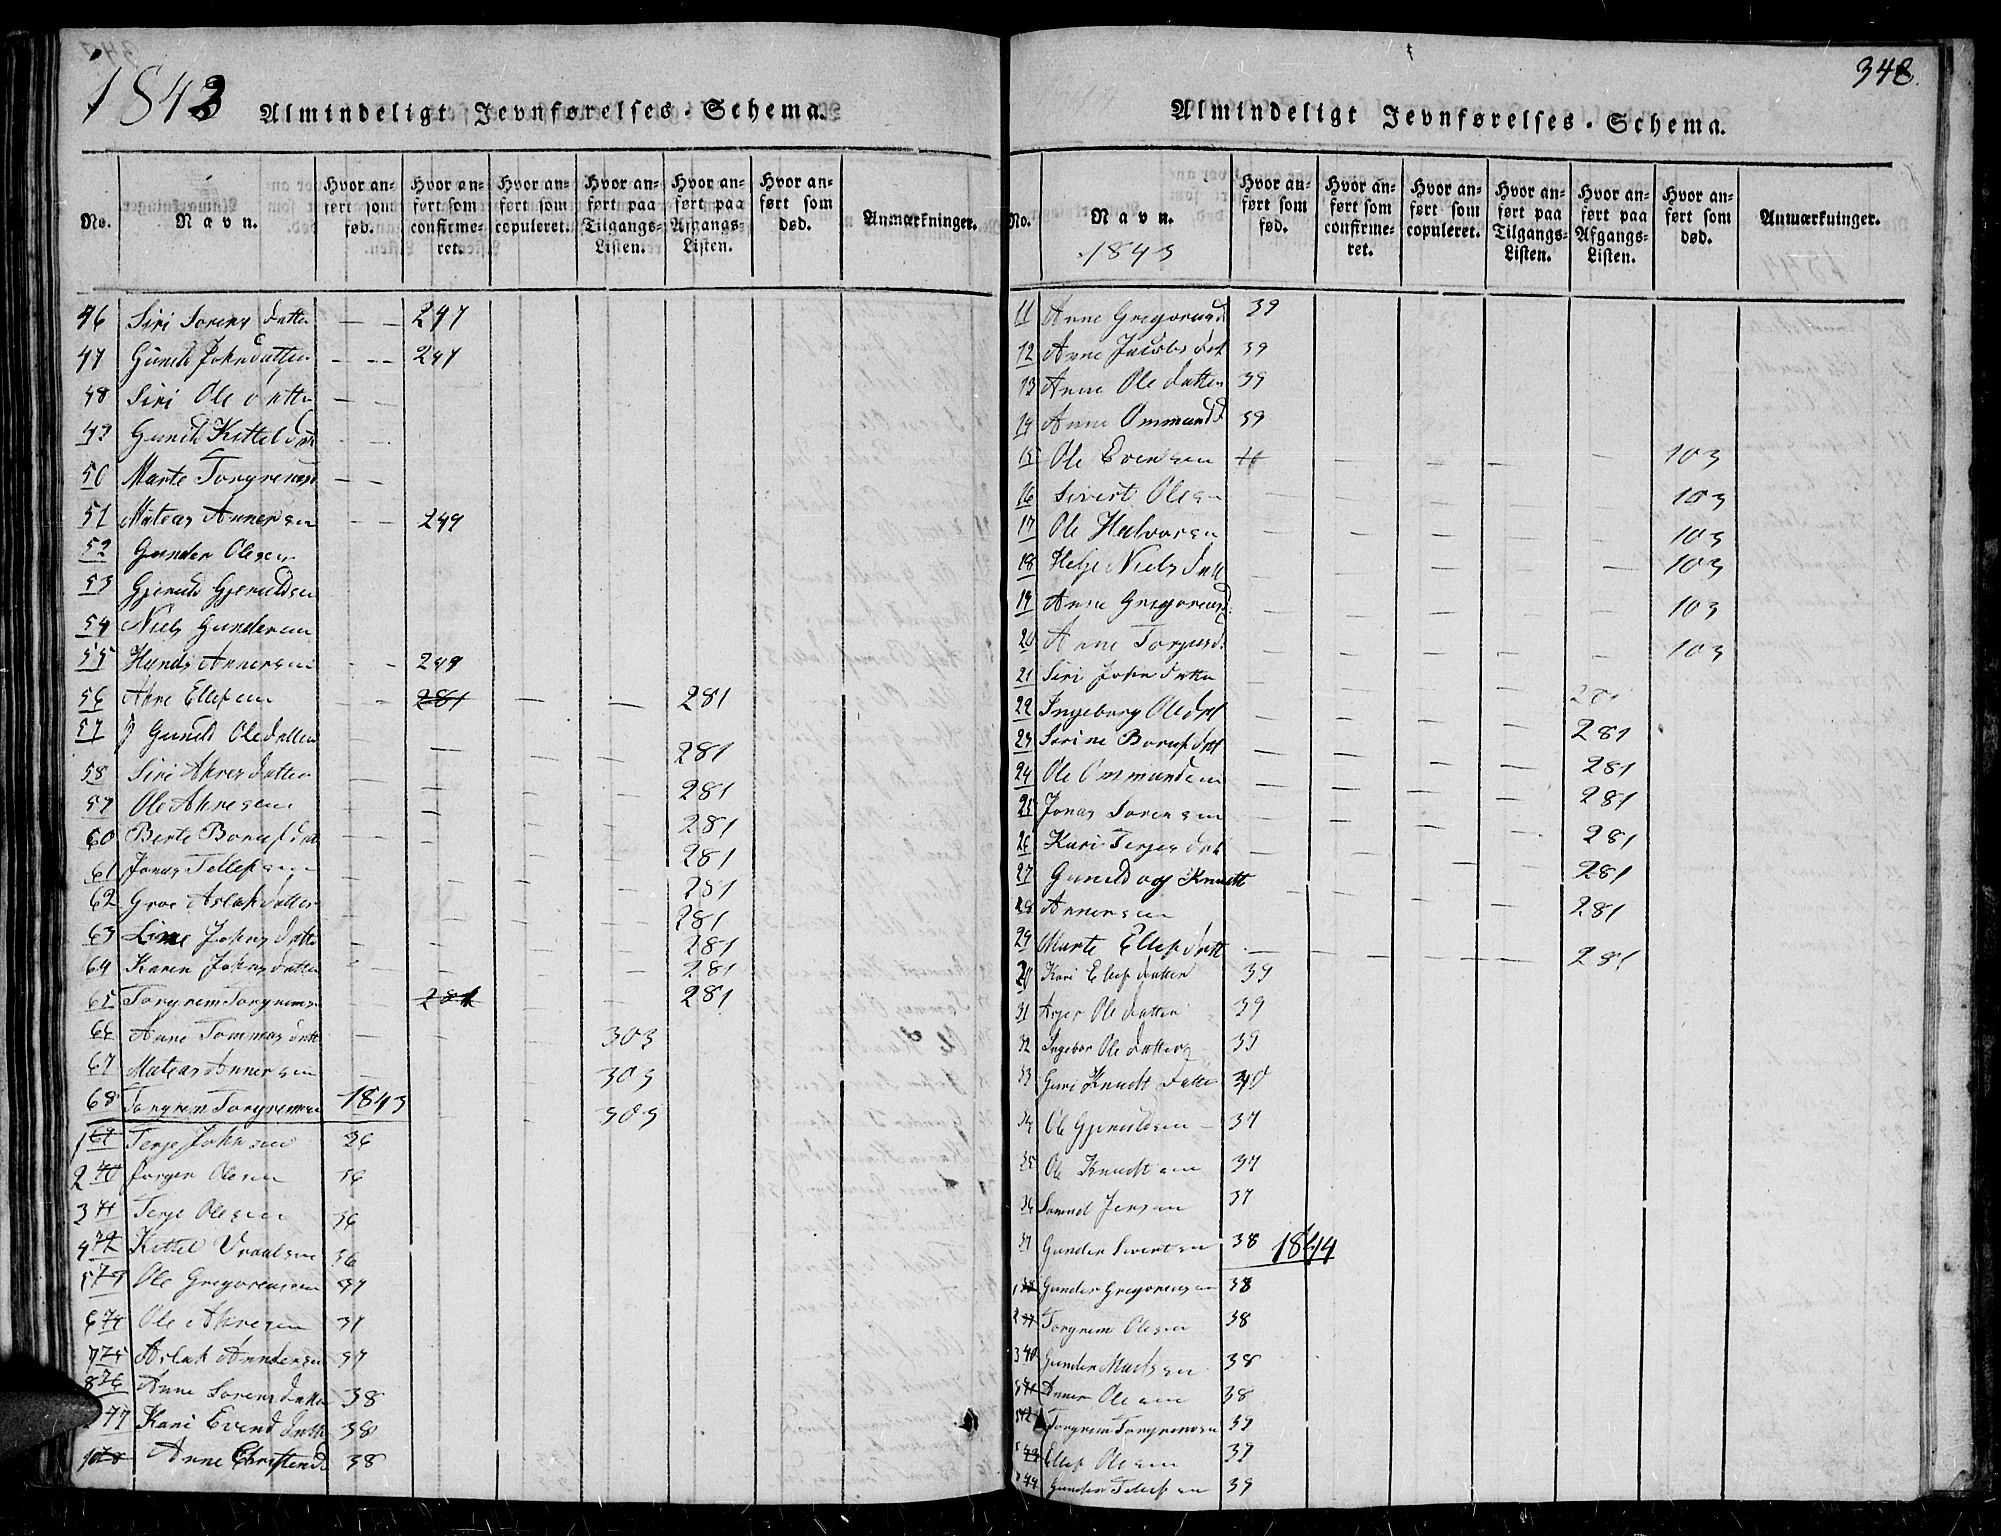 1843 Almindeligt Jevnførelses-Schema.
No. Navn. Hvor anført som fød. Hvor anført som confirmeret. Hvor anført som copuleret. Hvor anført paa Tilgangs-Listen. Hvor anført paa Afgangs-Listen. Hvor anført som død. Anmærkninger.
46 Siri Sorens datter 247
47 Gunild John datter 247
48 Siri Ole datter
49 Gunild Kittel
50 Marte Torgrems
51 Mateas Annersen 249
52 Gunder Olesen
53 Gjeruld Gjeruldsen
54 Niels Gundersen
55 Annersen 249
56 Ahre Ellefsen 281 281
57 Gunild Ole datter 281
58 Siri Ahres datter 281
59 Ole Ahresen 281
60 Berte Boruf dat 281
61 Jonas Tellefsen 281
62 Groe Aslak datter 281
63 Line Johns datt 281
64 Karen Johns datter 281
65 Torgrem Torgrems 281 281
66 Anne Tommas datt 303
67 Mateas Annersen 303
68 Torgrem Torgremsen 303
1843
1 69 Terje Johnsen 36
2 70 Jorgen Olesen 36
3 71 Terje Olesen 36
4 72 Kittel Vraalsen 36
5 73 Ole Gregorensen 37
6 74 Ole Ahresen 37
7 75 Aslak Anndersen 37
8 76 Anne Sorens datter 38
77 Kari Evend datt 38
10 78 Anne Christend 38
348.
Almindeligt Jevnførelses-Schema.
No. Navn. Hvor anført som fød. Hvor anført som confirmeret. Hvor anført som copuleret. Hvor anført paa Tilgangs-Listen. Hvor anført paa Afgangs-Listen. Hvor anført som død. Anmærkninger.
1843
11 Anne Gregorensd 39
12 Anne Jacobs dat 39
13 Anne Ole datter 39
14 Anne Ommundsd 39
15 Ole Evensen 103
16 Sivert Olesen 103
17 Ole Halvorsen 103
18 Helje Niels datt 103
19 Anne Gregorensd 103
20 Anne Torjusd. 103
21 Siri John datter 281
22 Ingeborg Ole dat 281
23 Sirine Boruf datt 281
24 Ole Ommundsen 281
25 Jonas Sorensen 281
26 Kari Terjes dat 281
27 Gunild og Knudt 281
28 Annersen
29 Marte Ellef datt 281
30 Kari Ellef datter 39
31 Asjer Ole datter 39
32 Ingebor Ole datter 39
33 Guri Knudt datte 40
34 Ole Gjeruldsen 37
35 Ole Knudtsen 37
36 Samuel Jensen 37
37 Gunder Sivertsen 38
1844
1 38 Gunder Gregorensen 38
2 39 Torgrem Olesen 38
3 40 Gunder Madsen 38
4 41 Anner Olesen 38
5 42 Torgrem Torgremsen 39
43 Ellef Olesen 39
44 Gunder Tellefsen 39